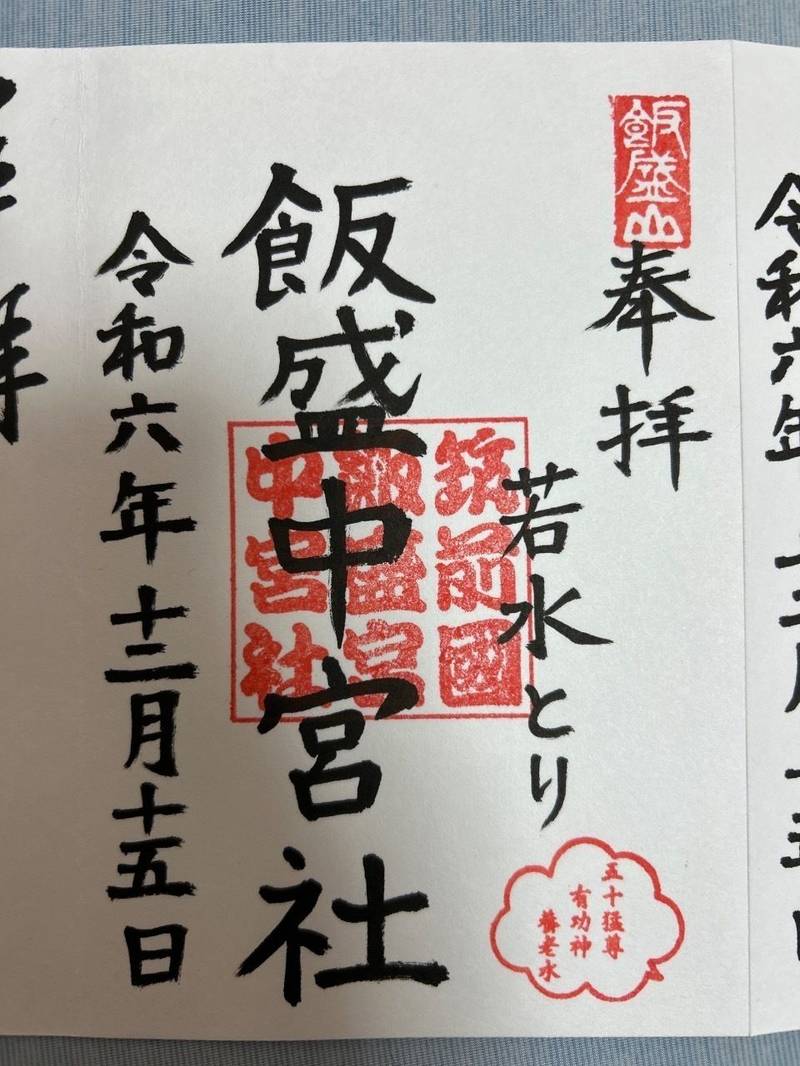 飯盛山
奉拝
若水とり
飯盛中宮社
筑前國
飯盛宮
中宮社
令和六年十二月十五日
五十猛尊
有功神
養老水
令和六年
拝